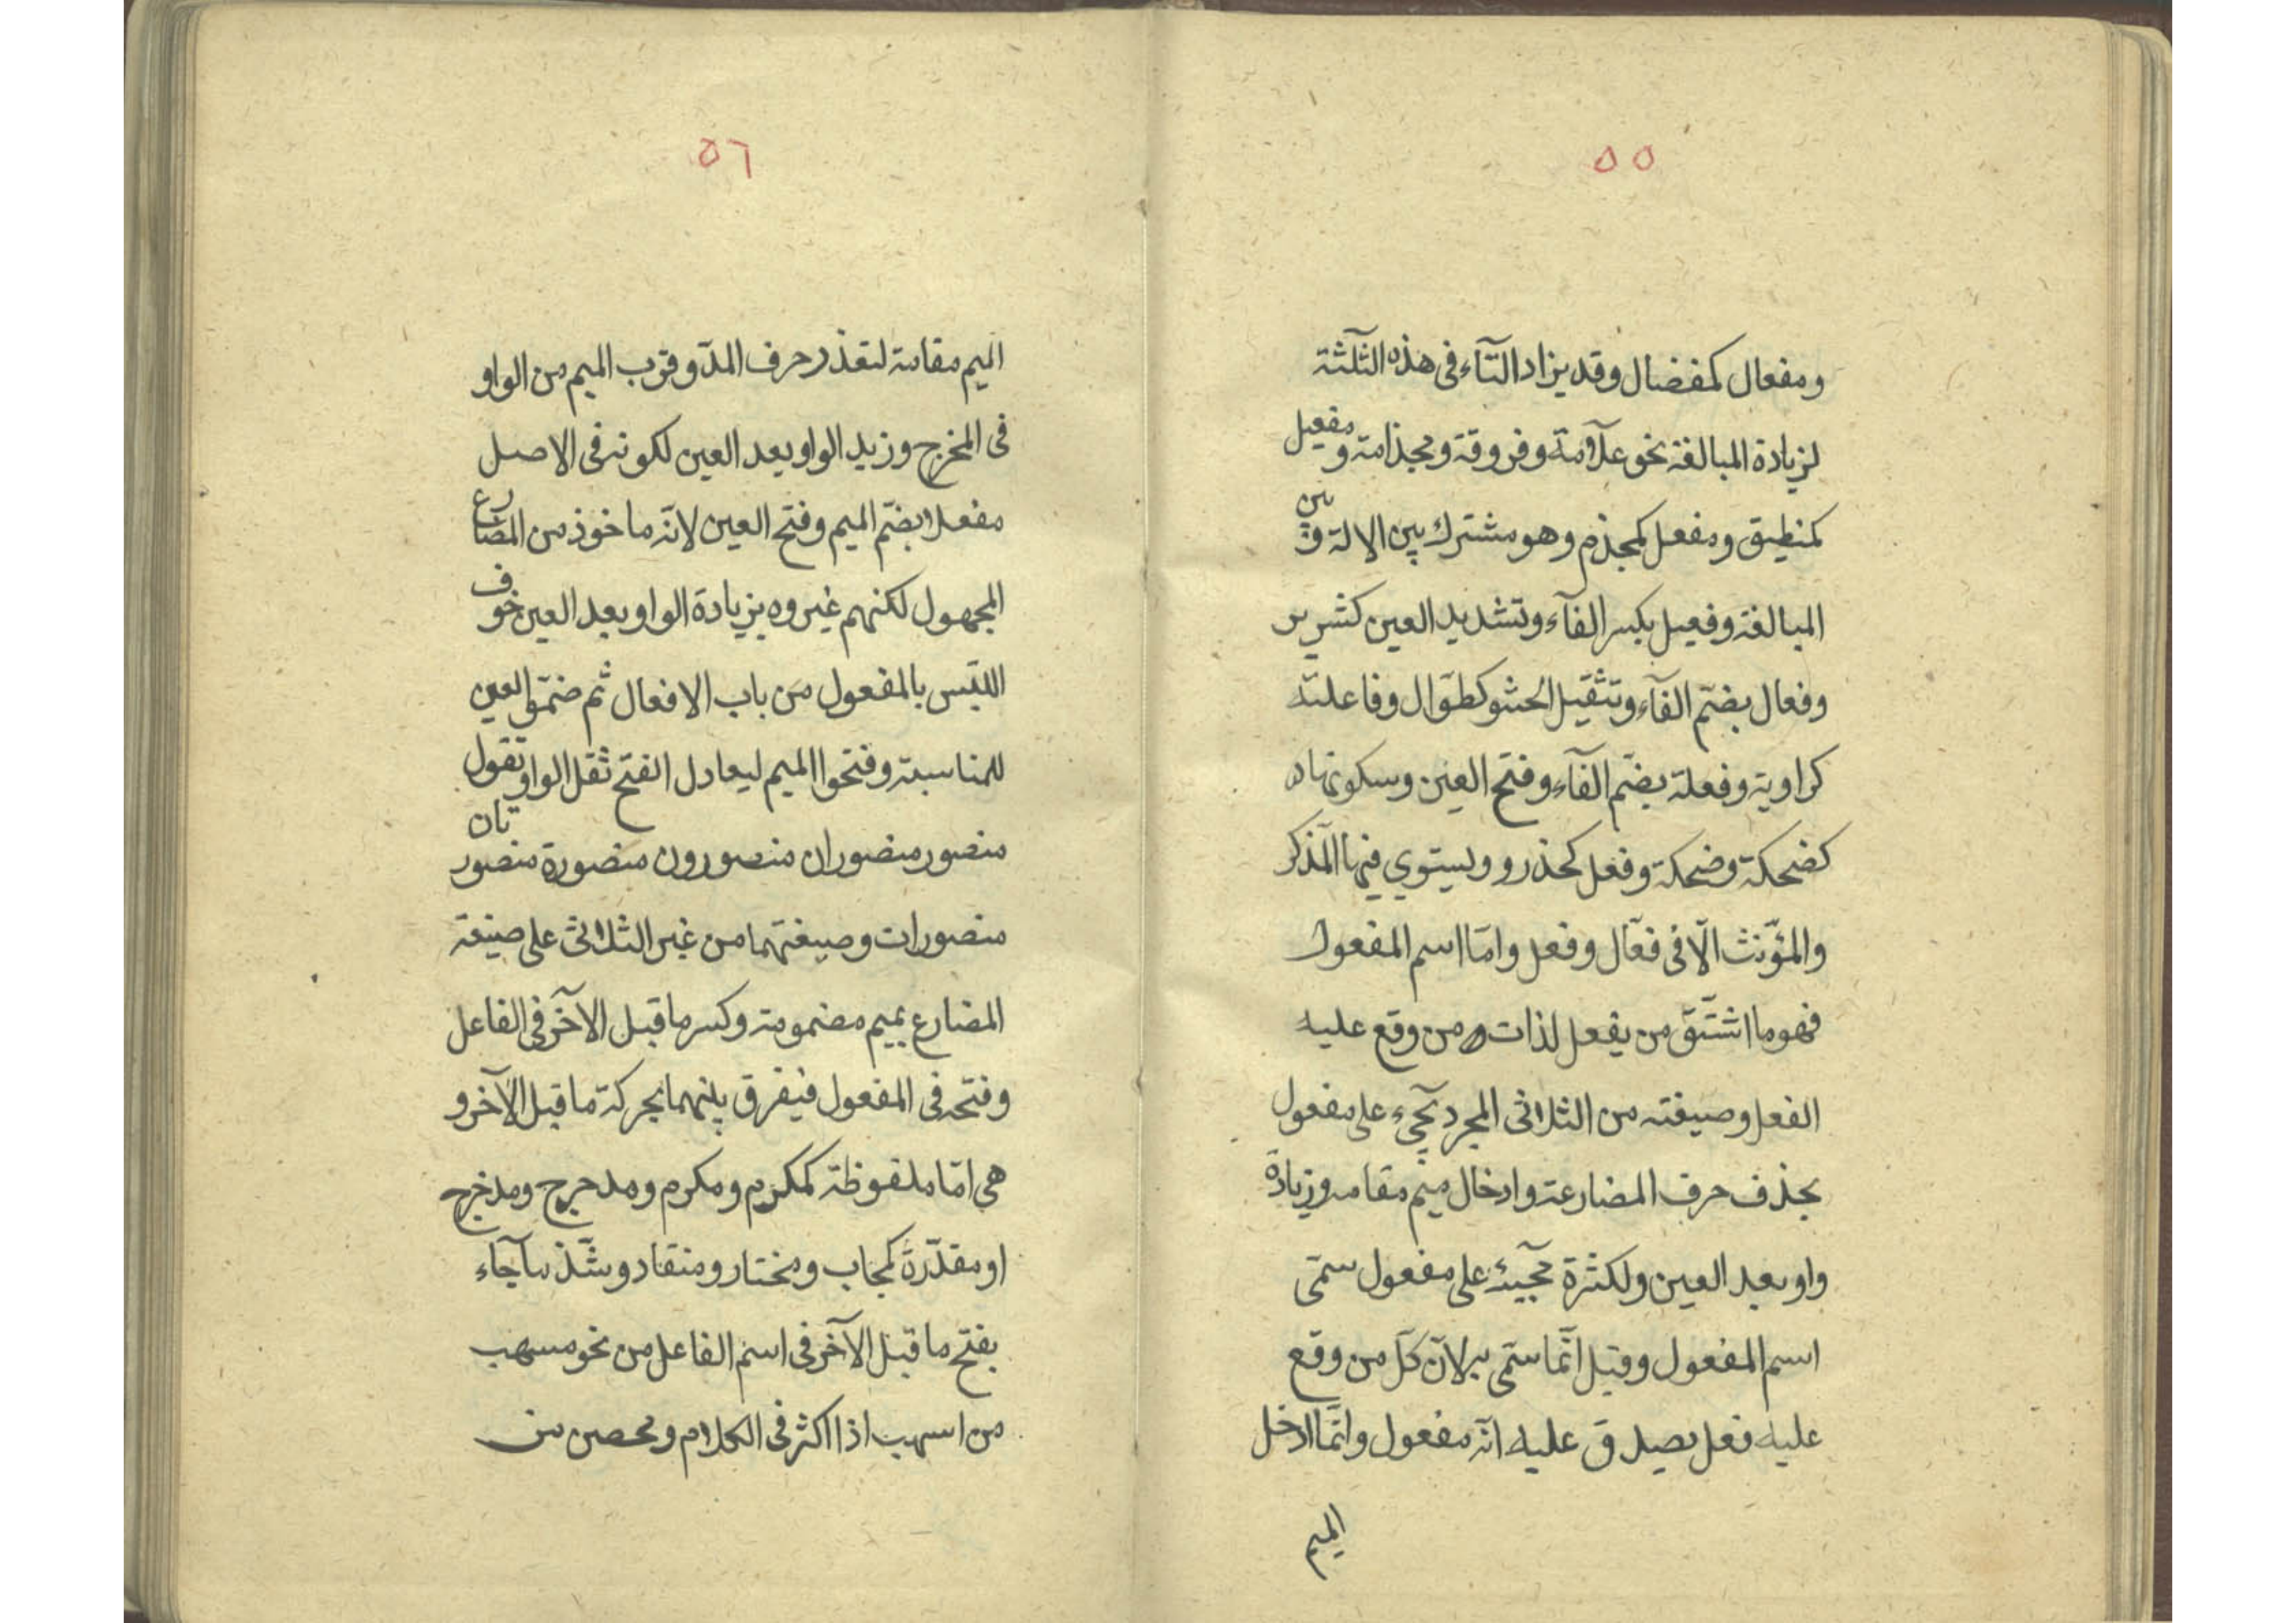 ٥٥
ومفعال كمفضال وقد يزاد التآء فى هذه الثلثة
لزيادة المبالغة نحو علّامة وفروقة ومجذامة ومفعيل
كمنطيق ومفعل كمجذم وهو مشترك بين الالة وبين
المبالغة وفعيل بكسر الفآء وتشديد العين كشرير
وفعال بضمّ الفآء وتثقيل الحشو كطوّال وفاعلة
كراوية وفعلة بضمّ الفآء وفتح العين وسكونها
كضحكة وضحكة وفعل كحذر ويستوي فيها المذكر
والمؤنث الّا فى فعّال وفعل وامّا اسم المفعول
فهو ما اشتقّ من يفعل لذات من وقع عليه
الفعل وصيغته من الثلاثى المجرد تجيء على مفعول
بحذف حرف المضارعة وادخال ميم مقامه وزيادة
واو بعد العين ولكثرة مجيئه على مفعول سمّى
اسم المفعول وقيل انّما سمّى به لانّ كلّ من وقع
عليه فعل يصدق عليه انّه مفعول وانّما ادخل
الميم
٥٦
الميم مقامه لتعذر حرف المدّ وقرب الميم من الواو
فى المخرج وزيد الواو بعد العين لكونه فى الاصل
مفعلا بضمّ الميم وفتح العين لانّه ماخوذ من المضارع
المجهول لكنهم غيروه بزيادة الواو بعد العين خوف
اللبس بالمفعول من باب الافعال ثم ضمّوا العين
للمناسبة وفتحوا الميم ليعادل الفتح ثقل الواو تقول
منصور منصوران منصورون منصورة منصورتان
منصورات وصيغتهما من غير الثلاثى على صيغة
المضارع بميم مضمومة وكسر ما قبل الآخر فى الفاعل
وفتحه فى المفعول فيفرق بينهما بحركة ما قبل الآخر و
هي امّا ملفوظة كمكرم ومكرم ومدحرج ومدحرج
او مقدّرة كمجاب ومختار ومنقاد وشّذ ما جآء
بفتح ما قبل الآخر فى اسم الفاعل من نحو مسهب
من اسهب اذا اكثر فى الكلام ومحصن من